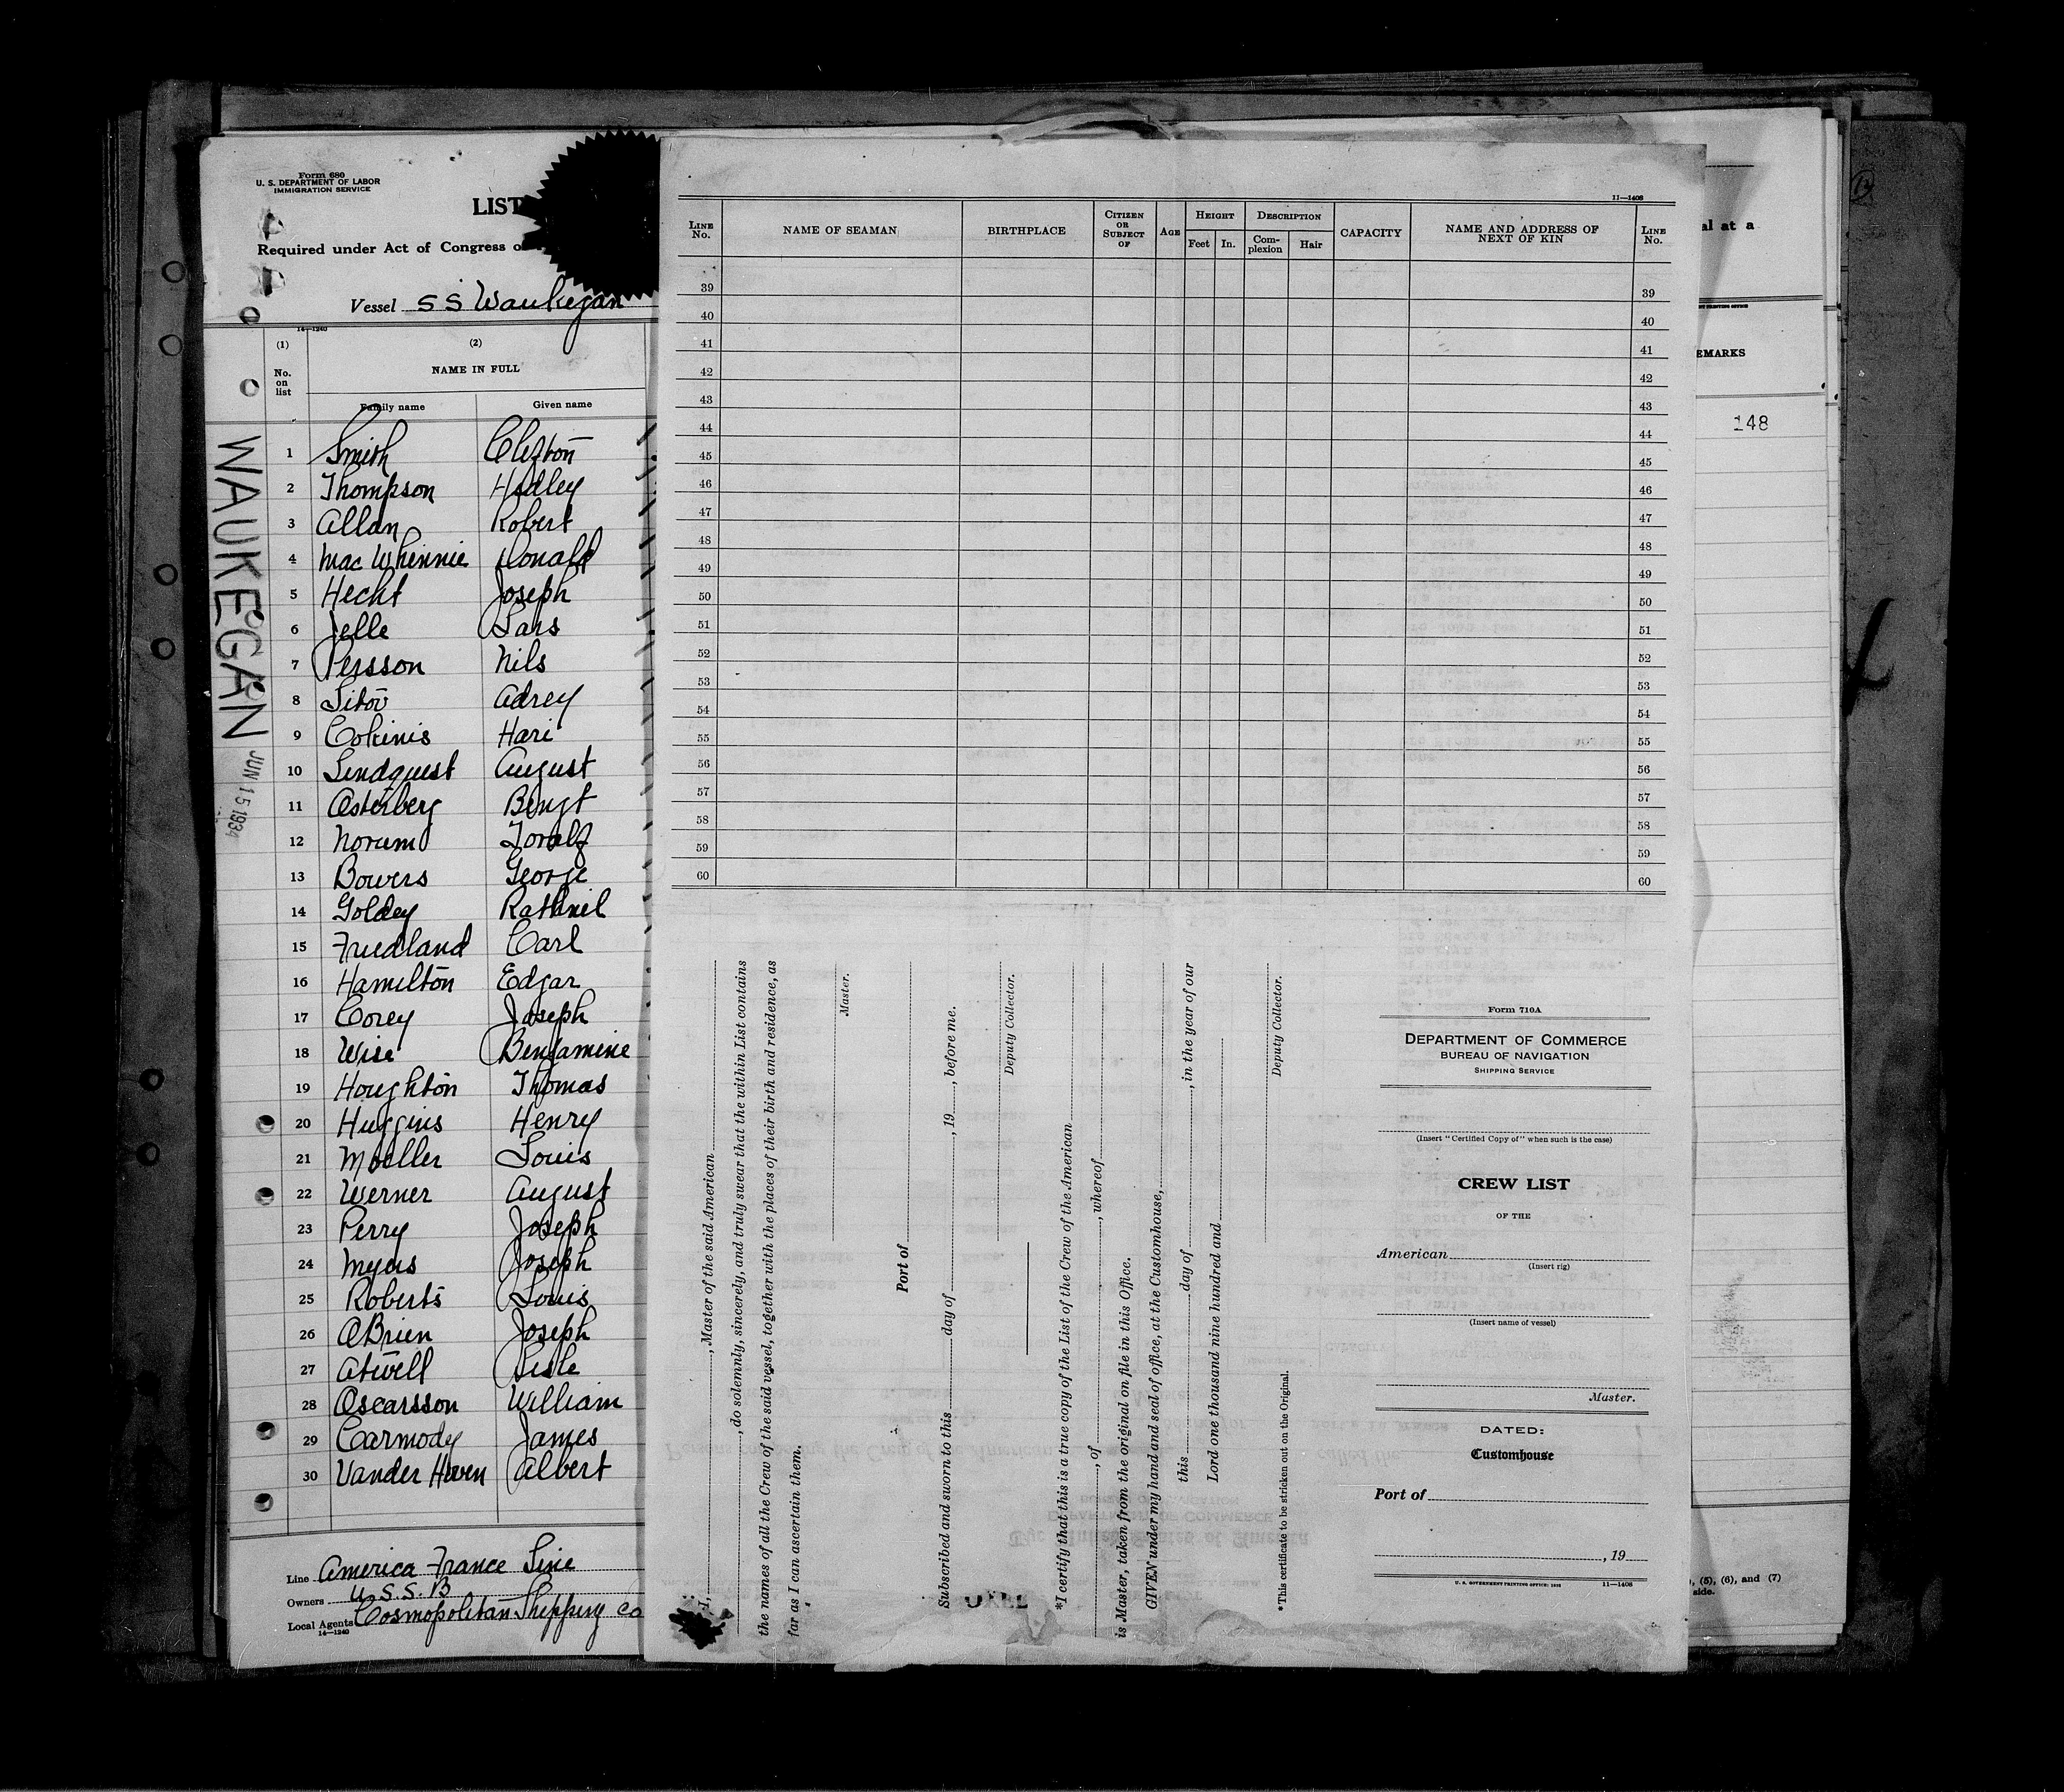 Form 680
U. S. DEPARTMENT OF LABOR
IMMIGRATION SERVICE
LIST
Required under Act of Congress o
Vessel S S Waukegan
14—1240
(1) (2)
No. on list NAME IN FULL
Family name Given name
1 Smith Clifton
2 Thompson Hadley
3 Allan Robert
4 Mac Whinnie Donald
5 Hecht Joseph
6 Jelle Lars
7 Persson Nils
8 Titov Adrey
9 Cokinis Hari
10 Lindquist August
11 Osterberg Bengt
12 Norum Toralf
13 Bowers George
14 Goldey Rathnil
15 Friedland Carl
16 Hamilton Edgar
17 Corey Joseph
18 Wise Benjamine
19 Houghton Thomas
20 Huggins Henry
21 Moeller Louis
22 Werner August
23 Perry Joseph
24 Myers Joseph
25 Roberts Louis
26 OBrien Joseph
27 Atwell Lisle
28 Oscarsson William
29 Carmody James
30 Vander Heven Albert
Line America France Line
Owners U.S.S.B
Local Agents Cosmopolitan Shipping Co
14—1240
WAUKEGAN
JUN 15 1934
11—1408
LINE No. NAME OF SEAMAN BIRTHPLACE CITIZEN OR SUBJECT OF AGE HEIGHT Feet In. DESCRIPTION Complexion Hair CAPACITY NAME AND ADDRESS OF NEXT OF KIN LINE No.
39 39
40 40
41 41
42 42
43 43
44 44
45 45
46 46
47 47
48 48
49 49
50 50
51 51
52 52
53 53
54 54
55 55
56 56
57 57
58 58
59 59
60 60
I, , Master of the said American
, do solemnly, sincerely, and truly swear that the within List contains
the names of all the Crew of the said vessel, together with the places of their birth and residence, as
far as I can ascertain them.
Master.
Port of
Subscribed and sworn to this day of , 19 , before me.
Deputy Collector.
*I certify that this is a true copy of the List of the Crew of the American
, of , whereof
is Master, taken from the original on file in this Office.
GIVEN under my hand and seal of office, at the Customhouse,
this day of , in the year of our
Lord one thousand nine hundred and
Deputy Collector.
*This certificate to be stricken out on the Original.
Form 710A
DEPARTMENT OF COMMERCE
BUREAU OF NAVIGATION
SHIPPING SERVICE
(Insert "Certified Copy of" when such is the case)
CREW LIST
OF THE
American
(Insert rig)
(Insert name of vessel)
Master.
DATED:
Customhouse
Port of
, 19
U. S. GOVERNMENT PRINTING OFFICE: 11—1408
al at a
EMARKS
148
, (5), (6), and (7)
side.